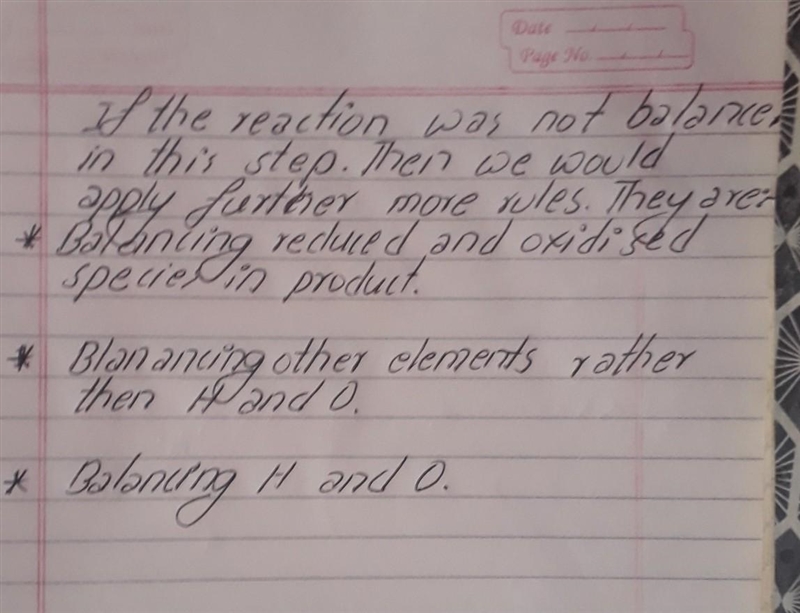 Date
Page No
If the reaction was not balance
in this step. Then we would
apply further more rules. They are:-
* Balancing reduced and oxidised
species in product.
* Blanancing other elements rather
then H and O.
* Balancing H and O.